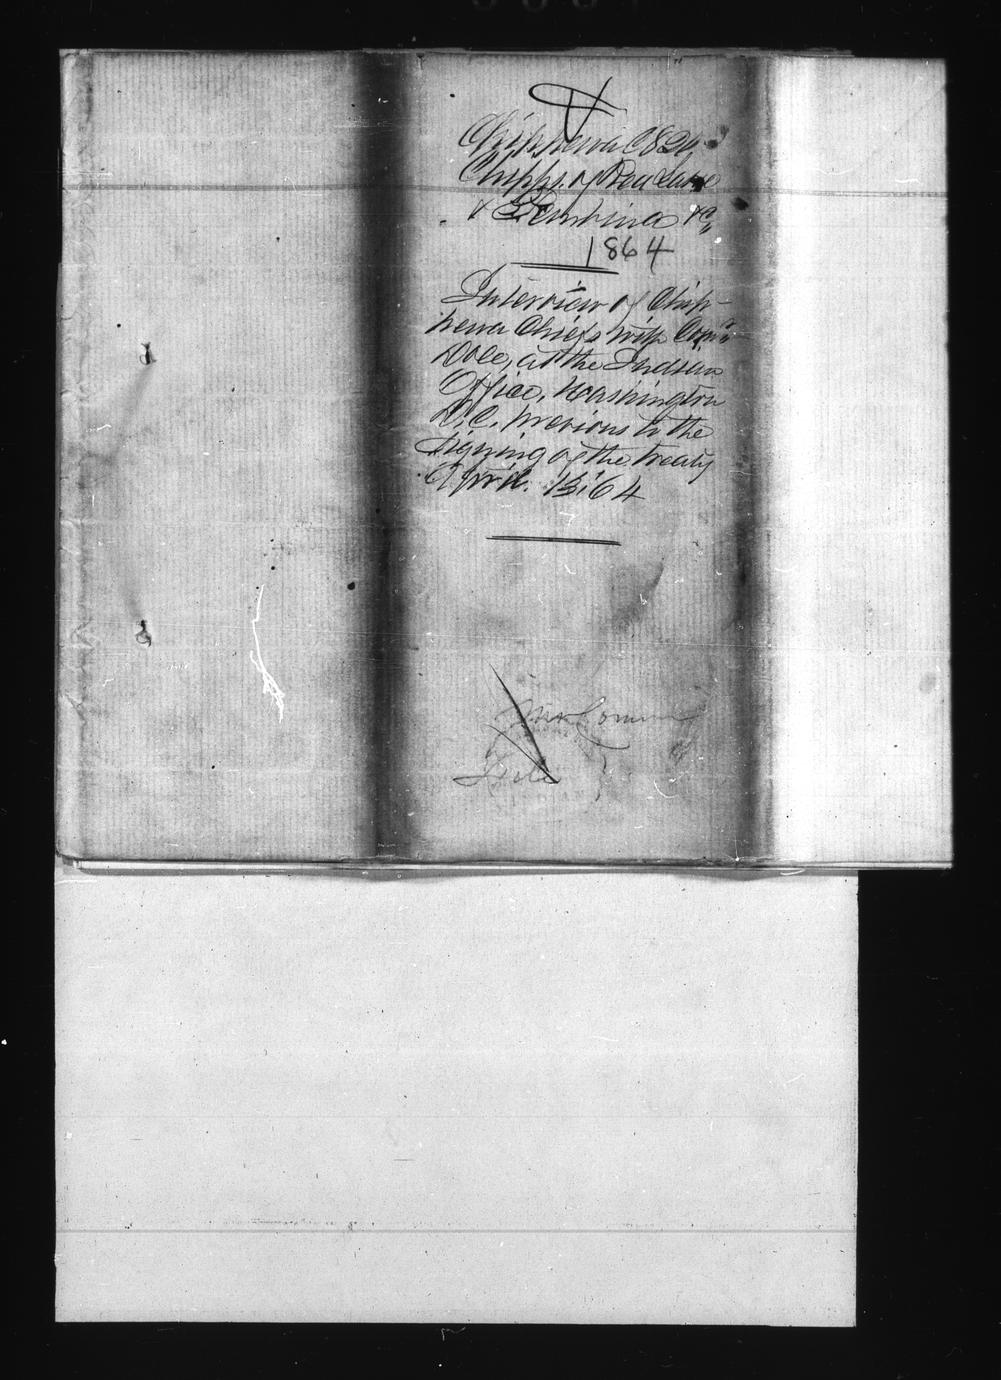 Chippewa C824
Chipps. of Red Lake
& Pembina &c
1864
Interview of Chip-
pewa Chiefs with Comr
Dole, at the Indian
Office, Washington
D.C. previous to the
signing of the treaty
April. 1864